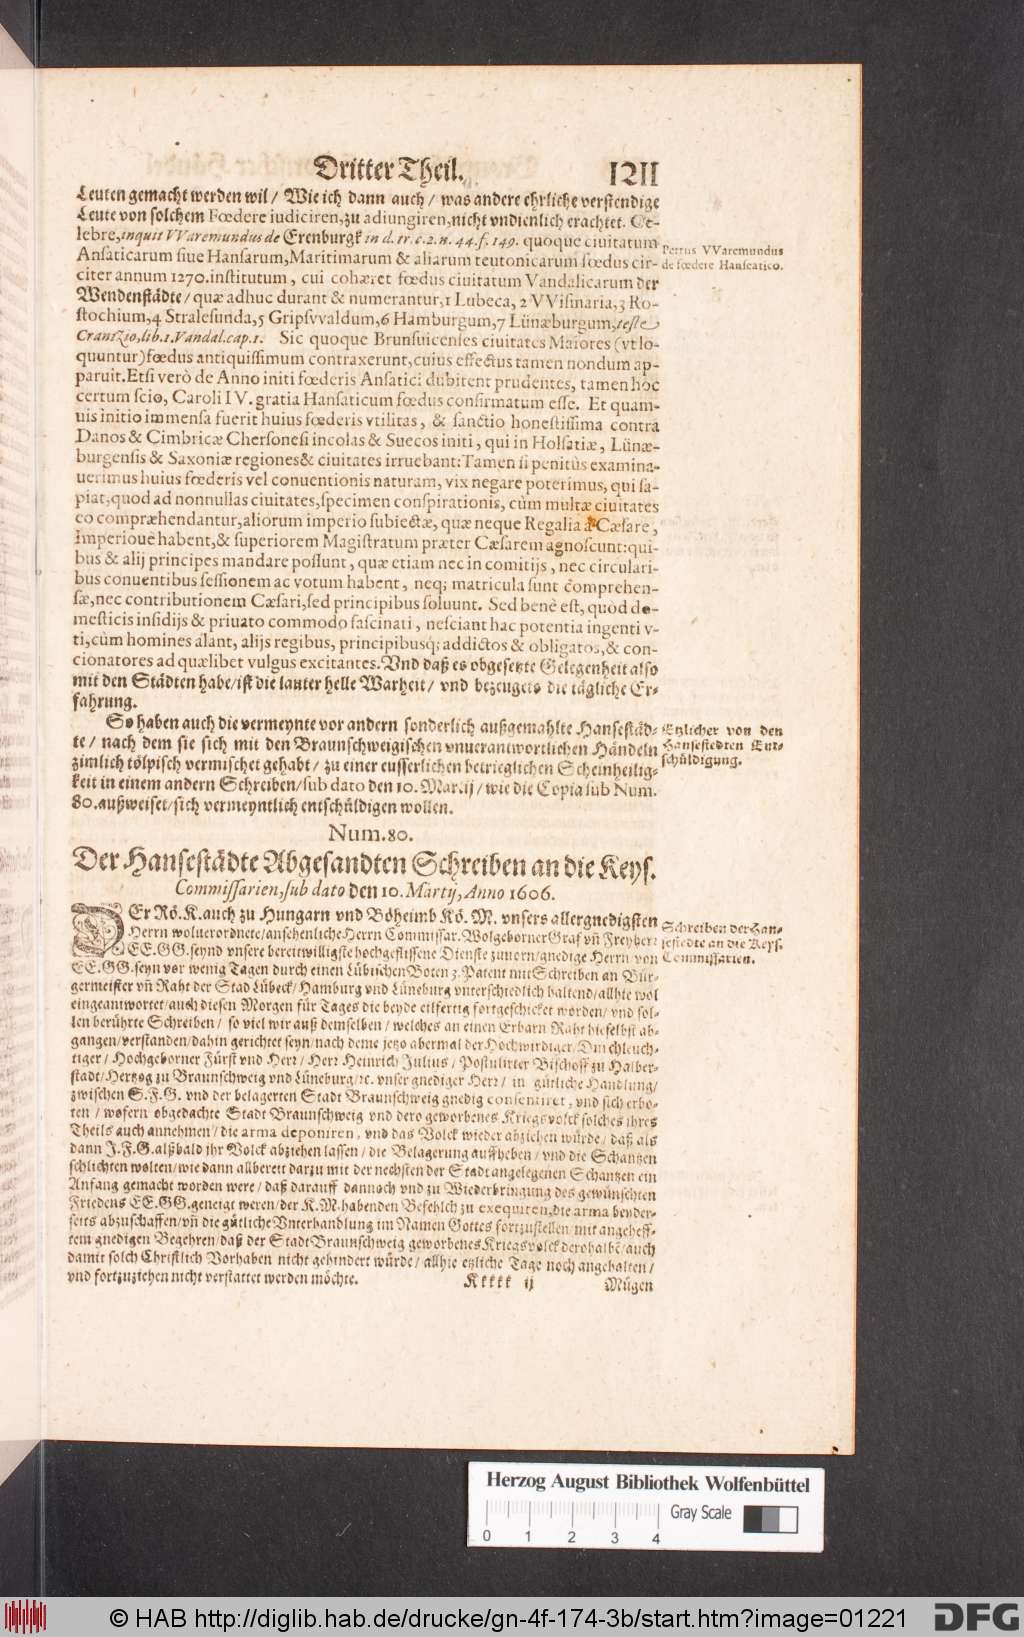 Dritter Theil. 1211
Leuten gemacht werden wil / Wie ich dann auch / was andere ehrliche verstendige
Leute von solchem Fœdere iudiciren, zu adiungiren, nicht vndienlich erachtet. Ce-
lebre, inquit VVaremundus de Erenburgk in d. tr. c. 2. n. 44. f. 149. quoque ciuitatum
Ansaticarum siue Hansarum, Maritimarum & aliarum teutonicarum fœdus cir-
citer annum 1270. institutum, cui cohæret fœdus ciuitatum Vandalicarum der
Wendenstädte / quæ adhuc durant & numerantur, 1 Lubeca, 2 VVisinaria, 3 Ro-
stochium, 4 Stralesunda, 5 Gripsvvaldum, 6 Hamburgum, 7 Lünæburgum, teste
Crantzio, lib. 1. Vandal. cap. 1. Sic quoque Brunsuicenses ciuitates Maiores (vt lo-
quuntur) fœdus antiquissimum contraxerunt, cuius effectus tamen nondum ap-
paruit. Etsi verò de Anno initi fœderis Ansatici dubitent prudentes, tamen hoc
certum scio, Caroli IV. gratia Hansaticum fœdus confirmatum esse. Et quam-
uis initio immensa fuerit huius fœderis vtilitas, & sanctio honestissima contra
Danos & Cimbricæ Chersonesi incolas & Suecos initi, qui in Holsatiæ, Lünæ-
burgensis & Saxoniæ regiones & ciuitates irruebant: Tamen si penitùs examina-
uerimus huius fœderis vel conuentionis naturam, vix negare poterimus, qui sa-
piat, quod ad nonnullas ciuitates, specimen conspirationis, cùm multæ ciuitates
eo compræhendantur, aliorum imperio subiectæ, quæ neque Regalia à Cæsare,
Imperioue habent, & superiorem Magistratum præter Cæsarem agnoscunt: qui-
bus & alij principes mandare possunt, quæ etiam nec in comitijs, nec circulari-
bus conuentibus sessionem ac votum habent, neq; matricula sunt comprehen-
sæ, nec contributionem Cæsari, sed principibus soluunt. Sed benè est, quòd do-
mesticis insidijs & priuato commodo fascinati, nesciant hac potentia ingenti v-
ti, cùm homines alant, alijs regibus, principibusq; addictos & obligatos, & con-
cionatores ad quælibet vulgus excitantes. Vnd daß es obgesetzte Gelegenheit also
mit den Städten habe / ist die lauter helle Warheit / vnd bezeugets die tägliche Er-
fahrung.
Petrus VVaremundus
de fœdere Hanseatico.
So haben auch die vermeynte vor andern sonderlich außgemahlte Hansestäd-
te / nach dem sie sich mit den Braunschweigischen vnuerantwortlichen Händeln
zimlich tölpisch vermischet gehabt / zu einer eusserlichen betrieglichen Scheinheilig-
keit in einem andern Schreiben / sub dato den 10. Mar. ij / wie die Copia sub Num.
80. außweiset / sich vermeyntlich entschüldigen wollen.
Etzlicher von den
Hansestedten Ent-
schüldigung.
Num. 80.
Der Hansestädte Abgesandten Schreiben an die Keys.
Commissarien, sub dato den 10. Martij, Anno 1606.
DEr Rö. K. auch zu Hungarn vnd Böheimb Kö. M. vnsers allergnedigsten
Herrn woluerordnete / ansehenliche Herrn Commissar. Wolgeborner Graf vñ Freyherr
EE. GG. seynd vnsere bereitwilligste hochgeflissene Dienste zuuorn / gnedige Herrn von
EE. GG. seyn vor wenig Tagen durch einen Lübischen Boten 3. Patent mit Schreiben an Bür-
germeister vñ Raht der Stad Lübeck / Hamburg vnd Lüneburg vnterschiedlich haltend / allhie wol
eingeantwortet / auch diesen Morgen für Tages die beyde eilfertig fortgeschicket worden / vnd sol-
len berührte Schreiben / so viel wir auß demselben / welches an einen Erbarn Raht hieselbst ab-
gangen / verstanden / dahin gerichtet seyn / nach deme jetzo abermal der Hochwirdiger / Durchleuch-
tiger / Hochgeborner Fürst vnd Herr / Herr Heinrich Julius / Postulirter Bischoff zu Halber-
stadt / Hertzog zu Braunschweig vnd Lüneburg / ꝛc. vnser gnediger Herr / in gütliche Handlung /
zwischen S. F. G. vnd der belagerten Stadt Braunschweig gnedig consentiret, vnd sich erbo-
ten / wofern obgedachte Stadt Braunschweig vnd dero geworbenes Kriegsvolck solches ihres
Theils auch annehmen / die arma deponiren, vnd das Volck wieder abziehen würde / daß als
dann J. F. G. alßbald jhr Volck abziehen lassen / die Belagerung auffheben / vnd die Schantzen
schlichten wolten / wie dann allbereit darzu mit der nechsten der Stadt angelegenen Schantzen ein
Anfang gemacht worden were / daß darauff dannoch vnd zu Wiederbringung des gewünschten
Friedens EE. GG. geneigt weren / der K. M. habenden Befehlch zu exequiren, die arma beyder-
seits abzuschaffen / vñ die gütliche Vnterhandlung im Namen Gottes fortzustellen / mit angeheff-
tem gnedigen Begehren / daß der Stadt Braunschweig geworbenes Kriegsvolck derohalbẽ / auch
damit solch Christlich Vorhaben nicht gehindert würde / allhie etzliche Tage noch angehalten /
vnd fortzuziehen nicht verstattet werden möchte.
Schreiben der Han-
sestedte an die Keys.
Commissarien.
Kkkkk ij Mügen
Herzog August Bibliothek Wolfenbüttel
Gray Scale
0 1 2 3 4
© HAB http://diglib.hab.de/drucke/gn-4f-174-3b/start.htm?image=01221 DFG